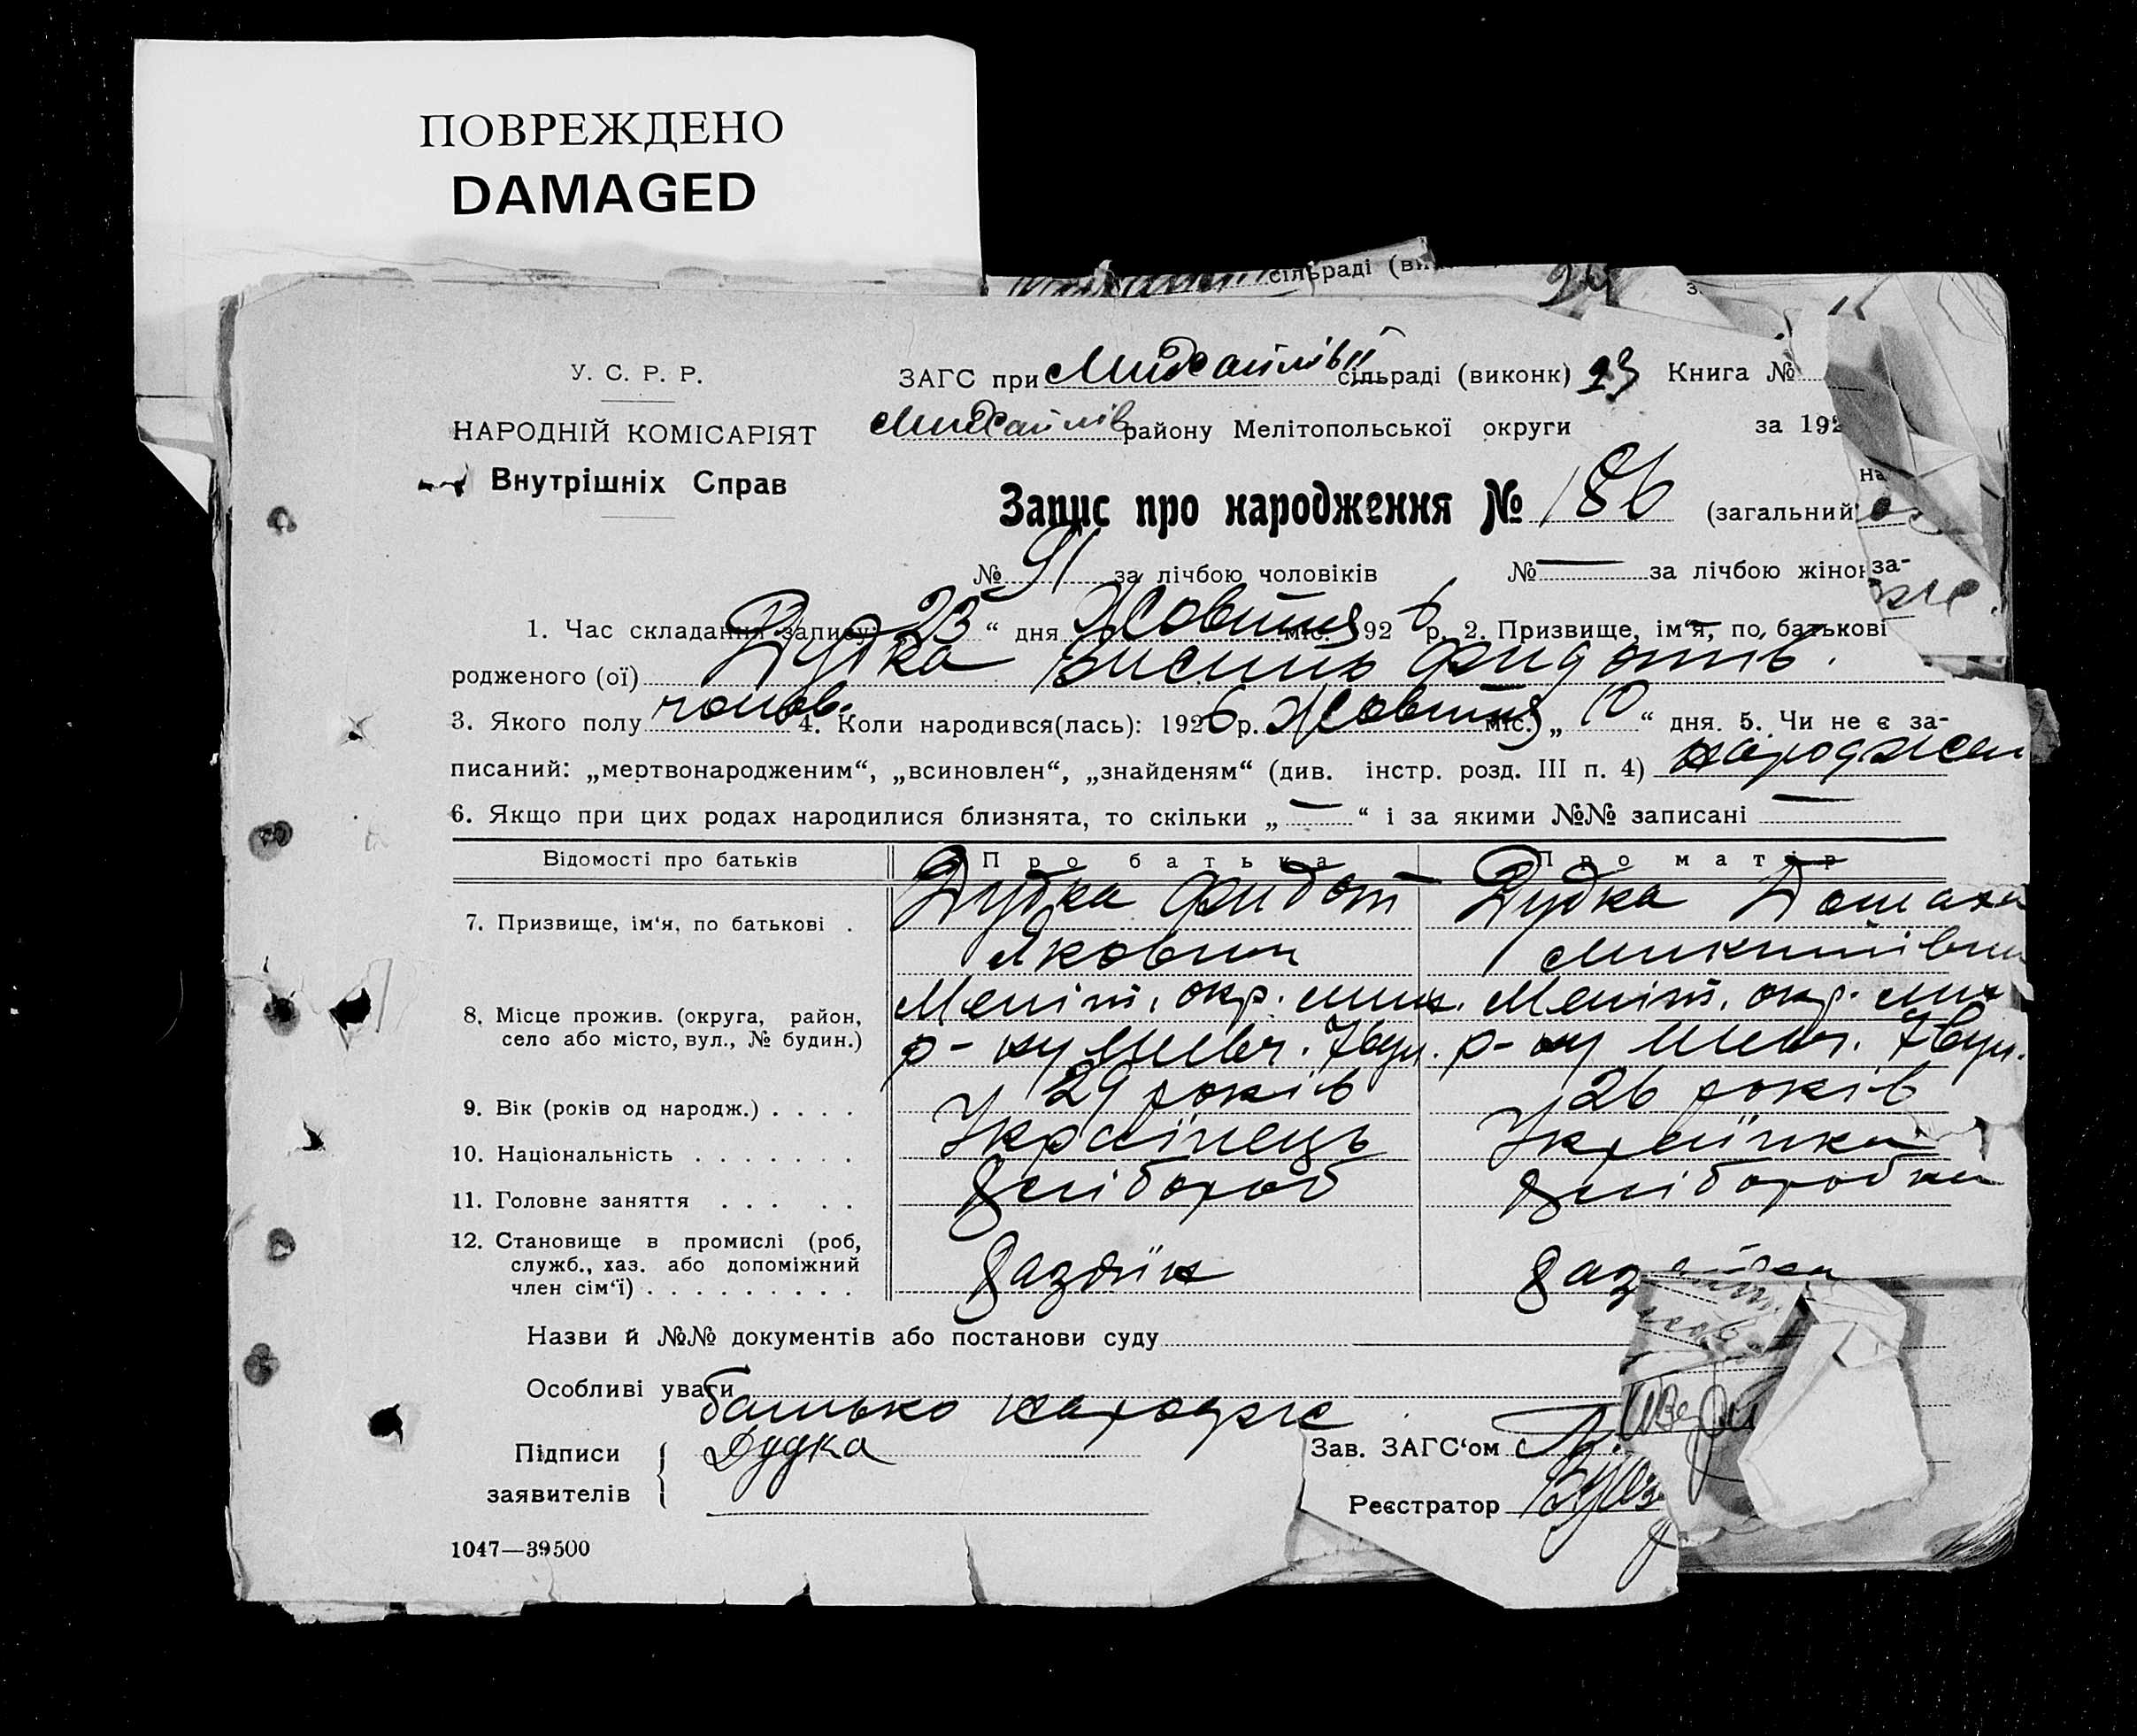 ПОВРЕЖДЕНО
DAMAGED
сільраді (ви
24
У. С. Р. Р.
НАРОДНІЙ КОМІСАРІЯТ
Внутрішніх Справ
ЗАГС при Михайлівсьрій сільраді (виконк) 23 Книга №
Михайлів району Мелітопольської округи за 192
Запис про народження № 186 (загальний
№ 91 за лічбою чоловіків № — за лічбою жінок
1. Час складання запису: „23“ дня Жовтня міс. 1926 р. 2. Призвище, ім‘я, по батькові
родженого (ої) Дудка Василь Фидотів.
3. Якого полу чолов. 4. Коли народився(лась): 1926 р. Жовтня міс. „10“ дня. 5. Чи не є за-
писаний: „мертвонародженим“, „всиновлен“, „знайденям“ (див. інстр. розд. III п. 4) народжен
6. Якщо при цих родах народилися близнята, то скільки „—“ і за якими №№ записані —
Відомості про батьків Про батька Про матір
7. Призвище, ім‘я, по батькові . Дудка Фидот Дудка Домаха
Якович Микитівна
8. Місце прожив. (округа, район, Меліт. окр. мих. Меліт. окр. мих
село або місто, вул., № будин.) р-ну Шевч. 7 вул. р-ну Шевч. 7 вул.
9. Вік (років од народж.) . . . . 29 років 26 років
10. Національність . . . . . . . Українець Українка
11. Головне заняття . . . . . Хлібороб Хліборобка
12. Становище в промислі (роб,
служб., хаз. або допоміжний
член сім‘ї) . . . . . . . . . Хазяїн Хазяйка
Назви й №№ документів або постанови суду
Особливі уваги
батько
Підписи Дудка Зав. ЗАГС‘ом
заявителів Реєстратор
1047—39500